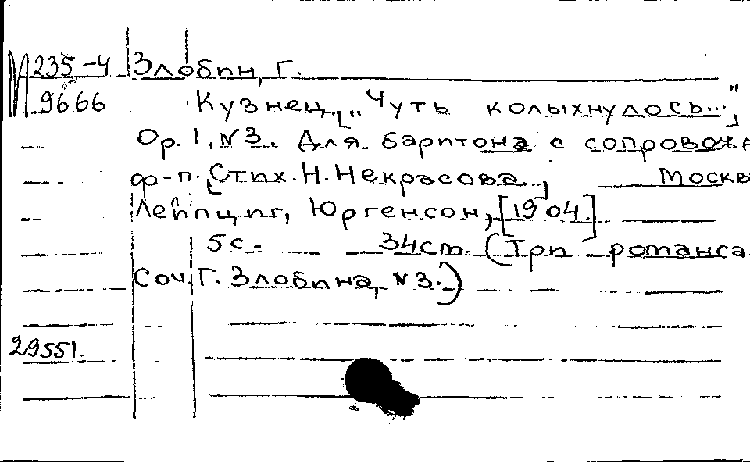 М235-4 Злобин, Г.
9666 Кузнец. [„Чуть колыхнулось..."]
Op. 1, № 3. Для баритона с сопровож
ф-п. [Стих. Н. Некрасова.] Москв
Лейпциг, Юргенсон, [1904.]
5с. 34см. (Три романса
Соч. Г. Злобина, № 3.)
29551.